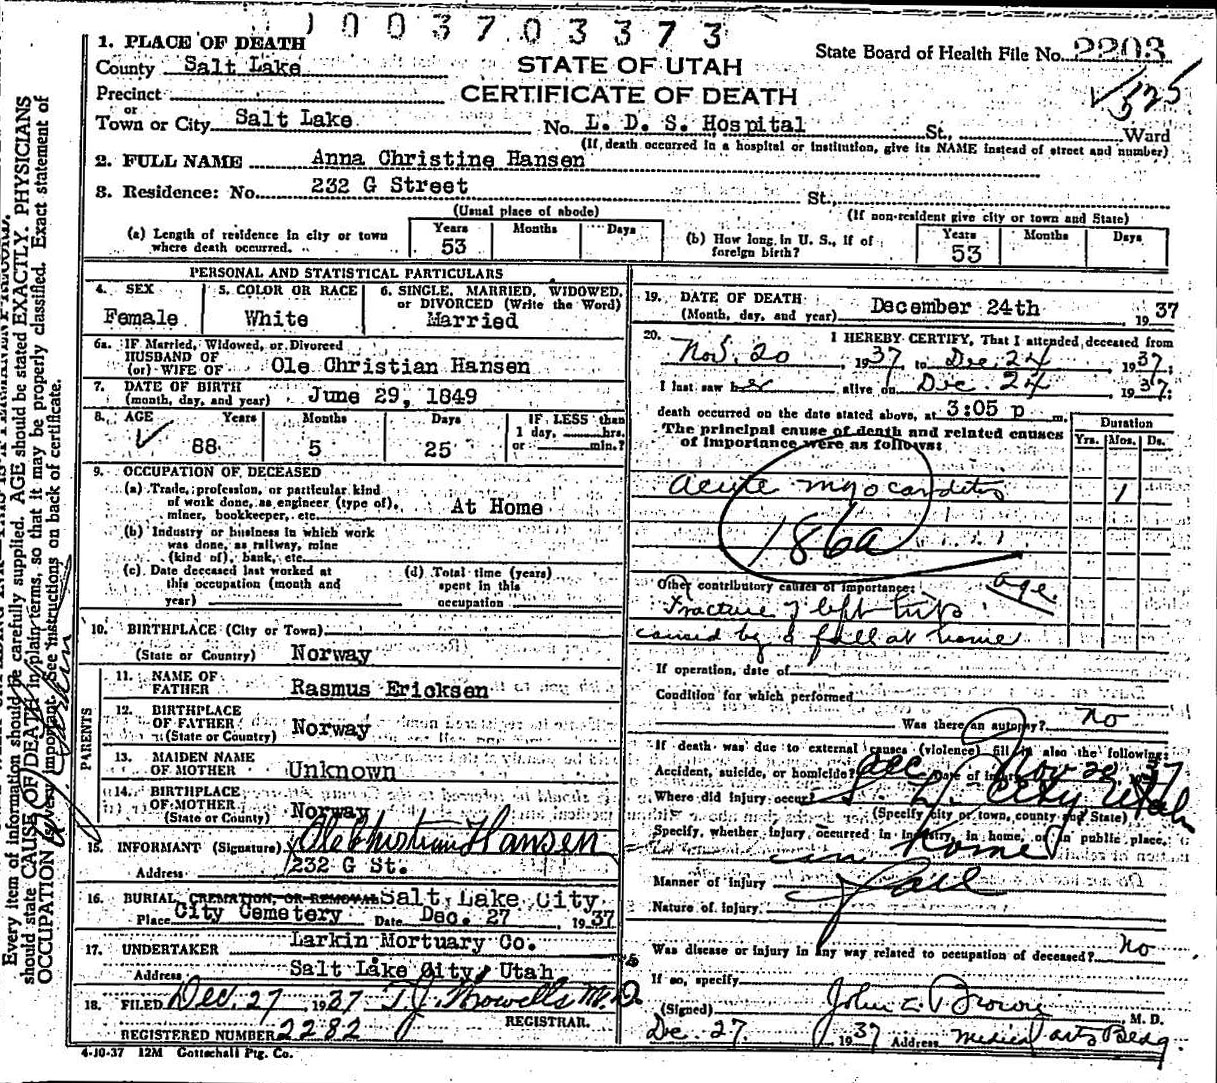 1003703373
1. PLACE OF DEATH
State Board of Health File No. 2203
County Salt Lake
STATE OF UTAH
√ 525
Precinct
CERTIFICATE OF DEATH
or
Town or City Salt Lake No. L. D. S. Hospital St., Ward
(If death occurred in a hospital or institution, give its NAME instead of street and number)
2. FULL NAME Anna Christine Hansen
3. Residence: No. 232 G Street St.,
(Usual place of abode) (If non-resident give city or town and State)
(a) Length of residence in city or town where death occurred. Years 53 Months Days
(b) How long in U. S., if of foreign birth? Years 53 Months Days
PERSONAL AND STATISTICAL PARTICULARS
4. SEX Female
5. COLOR OR RACE White
6. SINGLE, MARRIED, WIDOWED, or DIVORCED (Write the Word) Married
6a. IF Married, Widowed, or Divorced
HUSBAND OF
(or) WIFE OF Ole Christian Hansen
7. DATE OF BIRTH
(month, day, and year) June 29, 1849
8. AGE Years 88 Months 5 Days 25
IF LESS than
1 day, hrs.
or min.?
9. OCCUPATION OF DECEASED
(a) Trade, profession, or particular kind
of work done, as engineer (type of),
miner, bookkeeper, etc. At Home
(b) Industry or business in which work
was done, as railway, mine
(kind of), bank, etc.
(c) Date deceased last worked at
this occupation (month and
year)
(d) Total time (years)
spent in this
occupation
10. BIRTHPLACE (City or Town)
(State or Country) Norway
PARENTS
11. NAME OF
FATHER Rasmus Ericksen
12. BIRTHPLACE
OF FATHER
(State or Country) Norway
13. MAIDEN NAME
OF MOTHER Unknown
14. BIRTHPLACE
OF MOTHER
(State or Country) Norway
15. INFORMANT (Signature) Ole Christian Hansen
Address 232 G St.
16. BURIAL, CREMATION, OR REMOVAL Salt Lake City
Place City Cemetery Date Dec. 27 1937
17. UNDERTAKER Larkin Mortuary Co.
Address Salt Lake City, Utah
18. FILED Dec. 27 1937 T. J. Howells M.D.
REGISTRAR.
REGISTERED NUMBER 2282
4-10-37 12M Gottschall Ptg. Co.
19. DATE OF DEATH
(Month, day, and year) December 24th 1937
20. I HEREBY CERTIFY, That I attended deceased from
Nov. 20, 1937, to Dec. 24, 1937;
I last saw her alive on Dec. 24 1937;
death occurred on the date stated above, at 3:05 p m.
The principal cause of death and related causes
of importance were as follows:
Duration
Yrs. Mos. Ds.
acute myocarditis 1
186a
Other contributory causes of importance: age.
Fracture of left hip
caused by a fall at home
If operation, date of
Condition for which performed
Was there an autopsy? No
If death was due to external causes (violence) fill in also the following:
Accident, suicide, or homicide? acc Date of injury Nov 20 1937
Where did injury occur? S. L. City, Utah
(Specify city or town, county and State)
Specify, whether injury occurred in industry, in home, or in public place.
in Home
Manner of injury fall
Nature of injury
Was disease or injury in any way related to occupation of deceased? No
If so, specify
(Signed) John Z. Brown M. D.
Dec. 27. 1937 Address Medical Arts Bldg.
Every item of information should be carefully supplied. AGE should be stated EXACTLY. PHYSICIANS
should state CAUSE OF DEATH in plain terms, so that it may be properly classified. Exact statement of
OCCUPATION is very important. See instructions on back of certificate.